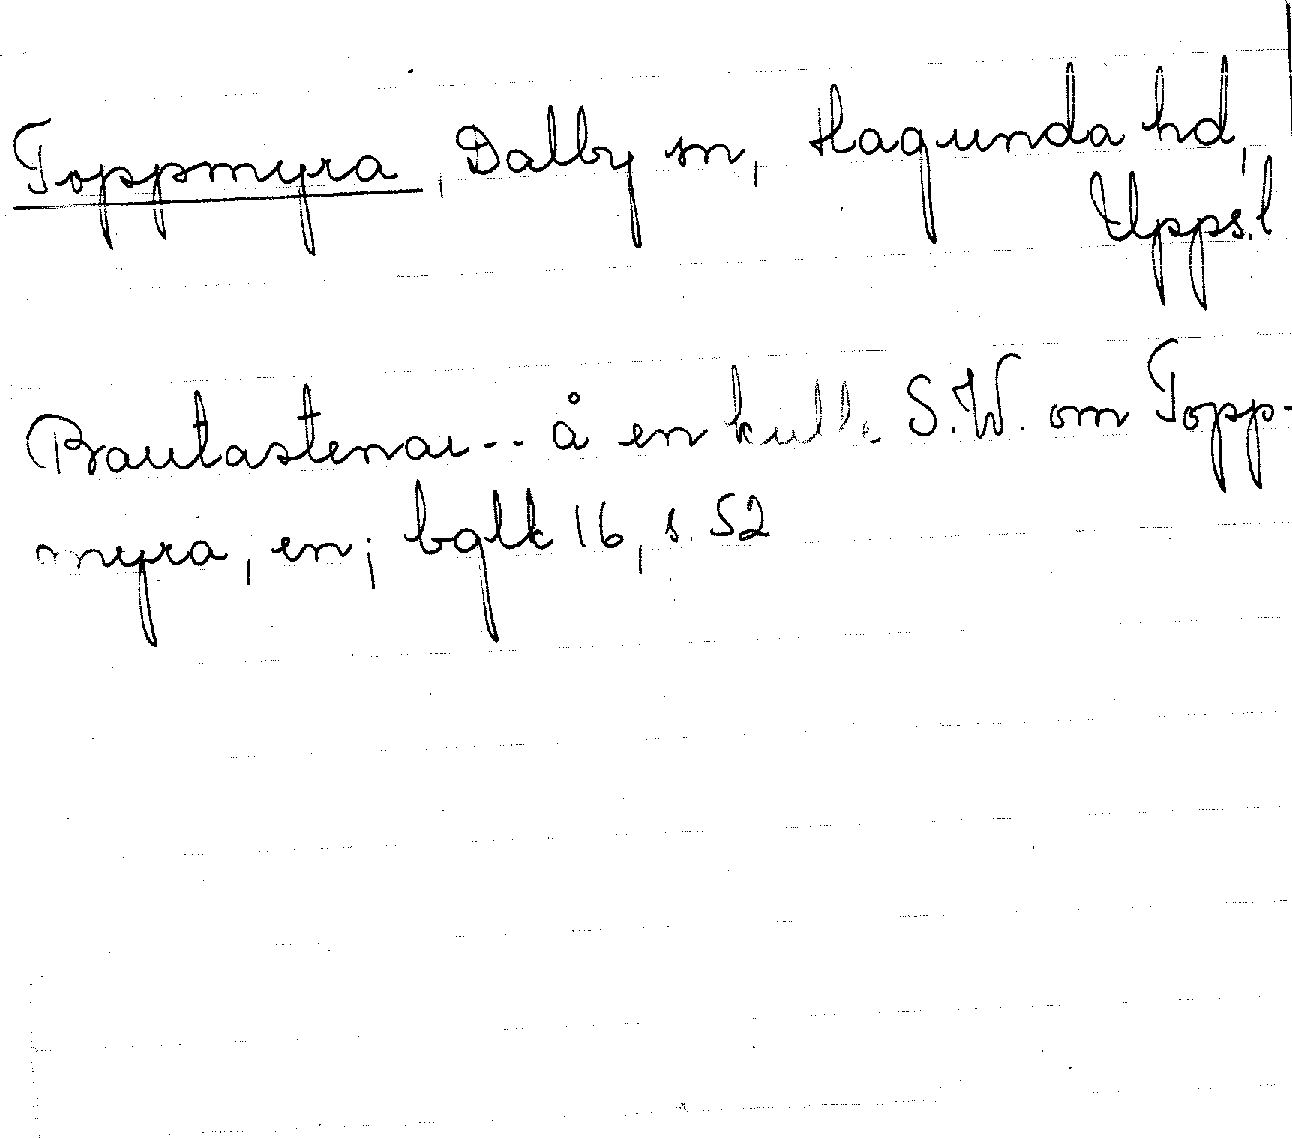 Toppmyra, Dalby sn, Hagunda hd,
Upps.l
Bautastenar -- å en kulle S.W. om Topp-
myra, en; bglk 16, s. 52